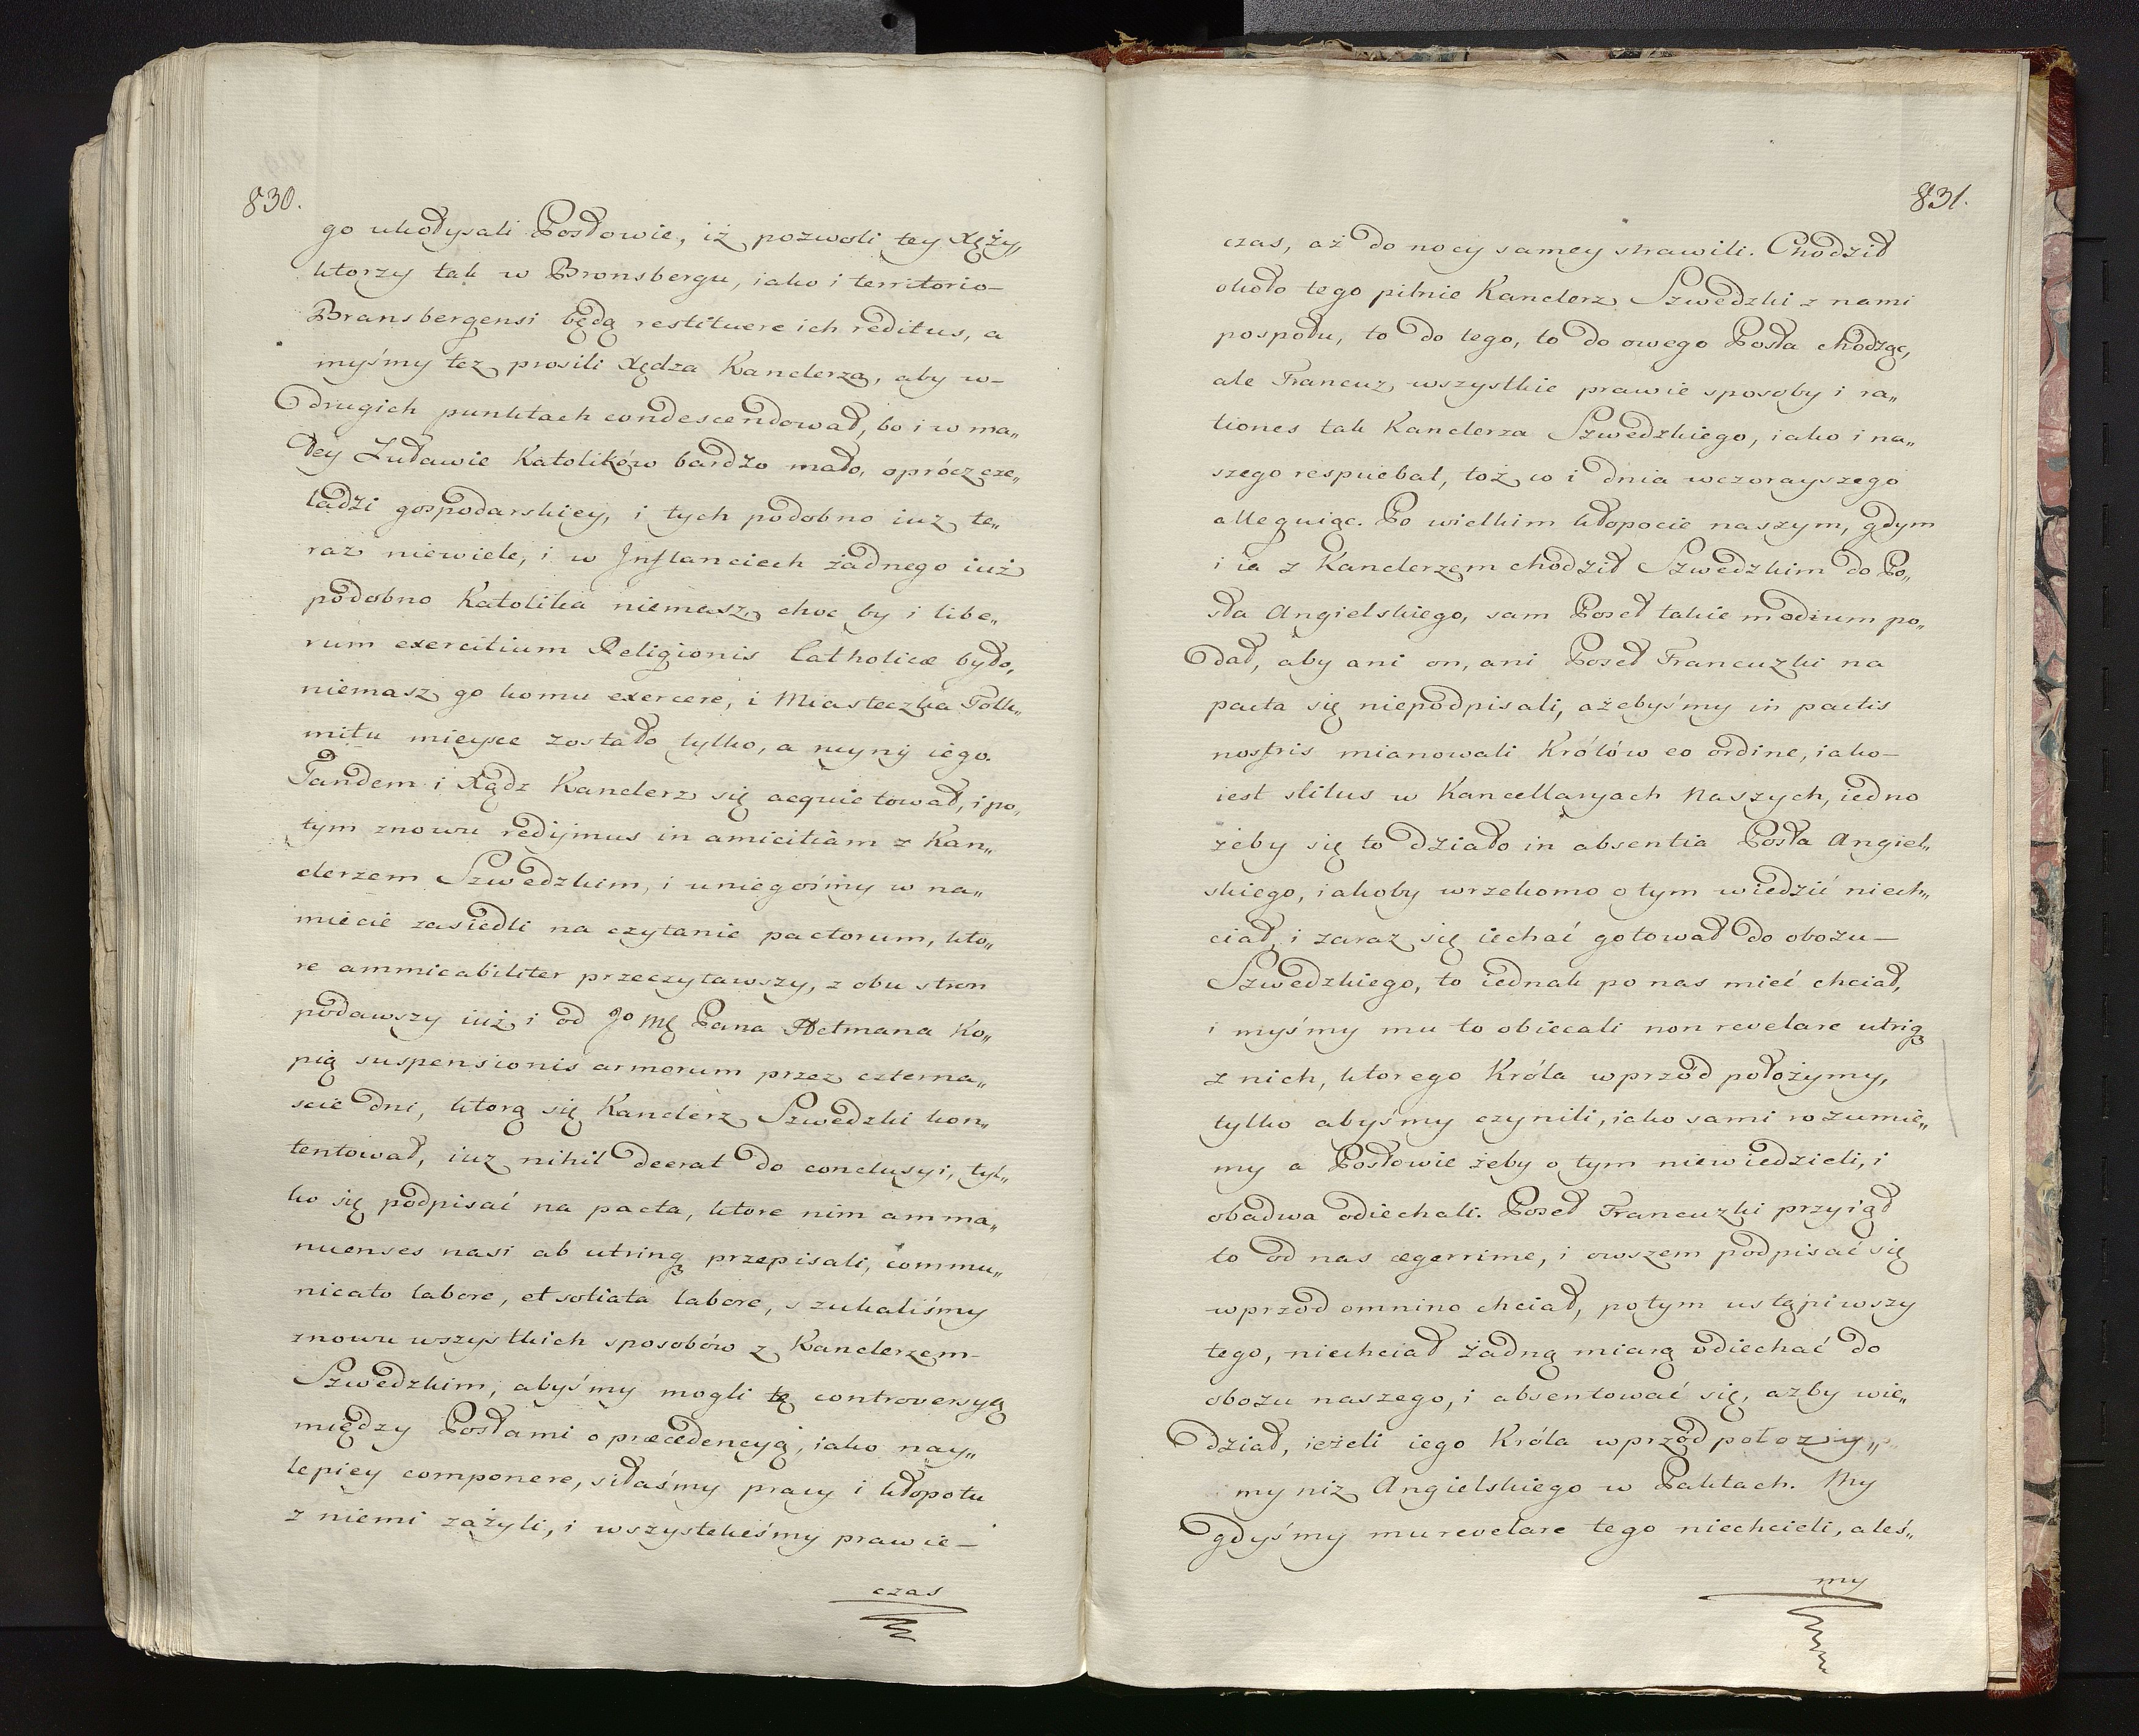 830.
go ukołysali Posłowie, iż pozwoli tey Xęży,
ktorzy tak w Bronsbergu, iako i territorio-
Bransbergensi będą restituere ich reditus, a
myśmy tez prosili Xędza Kanclerza, aby w-
drugich punktach condescendował, bo i w ma„
łey Żuławie Katolików bardzo mało, oprócz cze„
ladzi gospodarskiey, i tych podobno iuz te„
raz niewiele, i w Inflanciech żadnego iuż
podobno Katolika niemasz, choc by i libe„
rum exercitium Religionis Catholicæ było,
niemasz go komu exercere, i Miasteczka Tolk„
mitu mieysce zostało tylko, a ruyny iego.
Tandem i Xądz Kanclerz się acquietował, i po„
tym znowu redijmus in amicitiam z Kan„
clerzem Szwedzkim, i uniegośmy w na„
miecie zasiedli na czytanie pactorum, kto„
re ammicabiliter przeczytawszy, z obu stron
podawszy iuż i od Jo Mę Pana Hetmana Ko„
pią suspensionis armorum przez czterna„
scie dni, ktorą się Kanclerz Szwedzki kon„
tentował, iuz nihil deerat do conclusyi, tyl„
ko się podpisać na pacta, ktore nim amma„
nuenses nasi ab utrinq przepisali, commu„
nicato labore, et sotiata labore, szukaliśmy
znowu wszystkich sposobów z Kanclerzem-
Szwedzkim, abyśmy mogli tę controversyą
między Posłami o præcedencyą, iako nay„
lepiey componere, siłaśmy pracy i kłopotu
z niemi zażyli, i wszystekeśmy prawie-
czas
831.
czas, aż do nocy samey strawili. Chodził
około tego pilnie Kanclerz Szwedzki z nami
pospołu, to do tego, to do owego Posła chodząc,
ale Francuz, wszystkie prawie sposoby i ra„
tiones tak Kanclerza Szwedzkiego, iako i na„
szego respuebat, toż co i dnia wczorayszego
alleguiąc. Po wielkim kłopocie naszym, gdym
i ia z Kanclerzem chodził Szwedzkim do Po„
sła Angielskiego, sam Poseł takie modium po„
dał, aby ani on, ani Poseł Francuzki na
pacta się niepodpisali, ażebyśmy in pactis
nostris mianowali Królów eo ordine, iako-
iest stilus w Kancellaryach Naszych, iedno
żeby się to działo in absentia Posła Angiel„
skiego, iakoby wrzekomo o tym wiedzić niech„
ciał, i zaraz się iechać gotował do obozu-
Szwedzkiego, to iednak po nas mieć chciał,
i myśmy mu to obiecali non revelare utriq
z nich, ktorego Króla wprzód położymy,
tylko abyśmy czynili, iako sami rozumie„
my a Posłowie żeby o tym niewiedzieli, i
obadwa odiechali. Poseł Francuzki przyiął
to od nas ægerrime, i owszem podpisać się
wprzod omnino chciał, potym ustąpiwszy
tego, niechciał żadną miarą odiechać do
obozu naszego, i absentować się, azby wie„
dział, ieżeli iego Króla wprzod położy„
my niż Angielskiego w Paktach. My
gdyśmy mu revelare tego niechcieli, aleś„
my